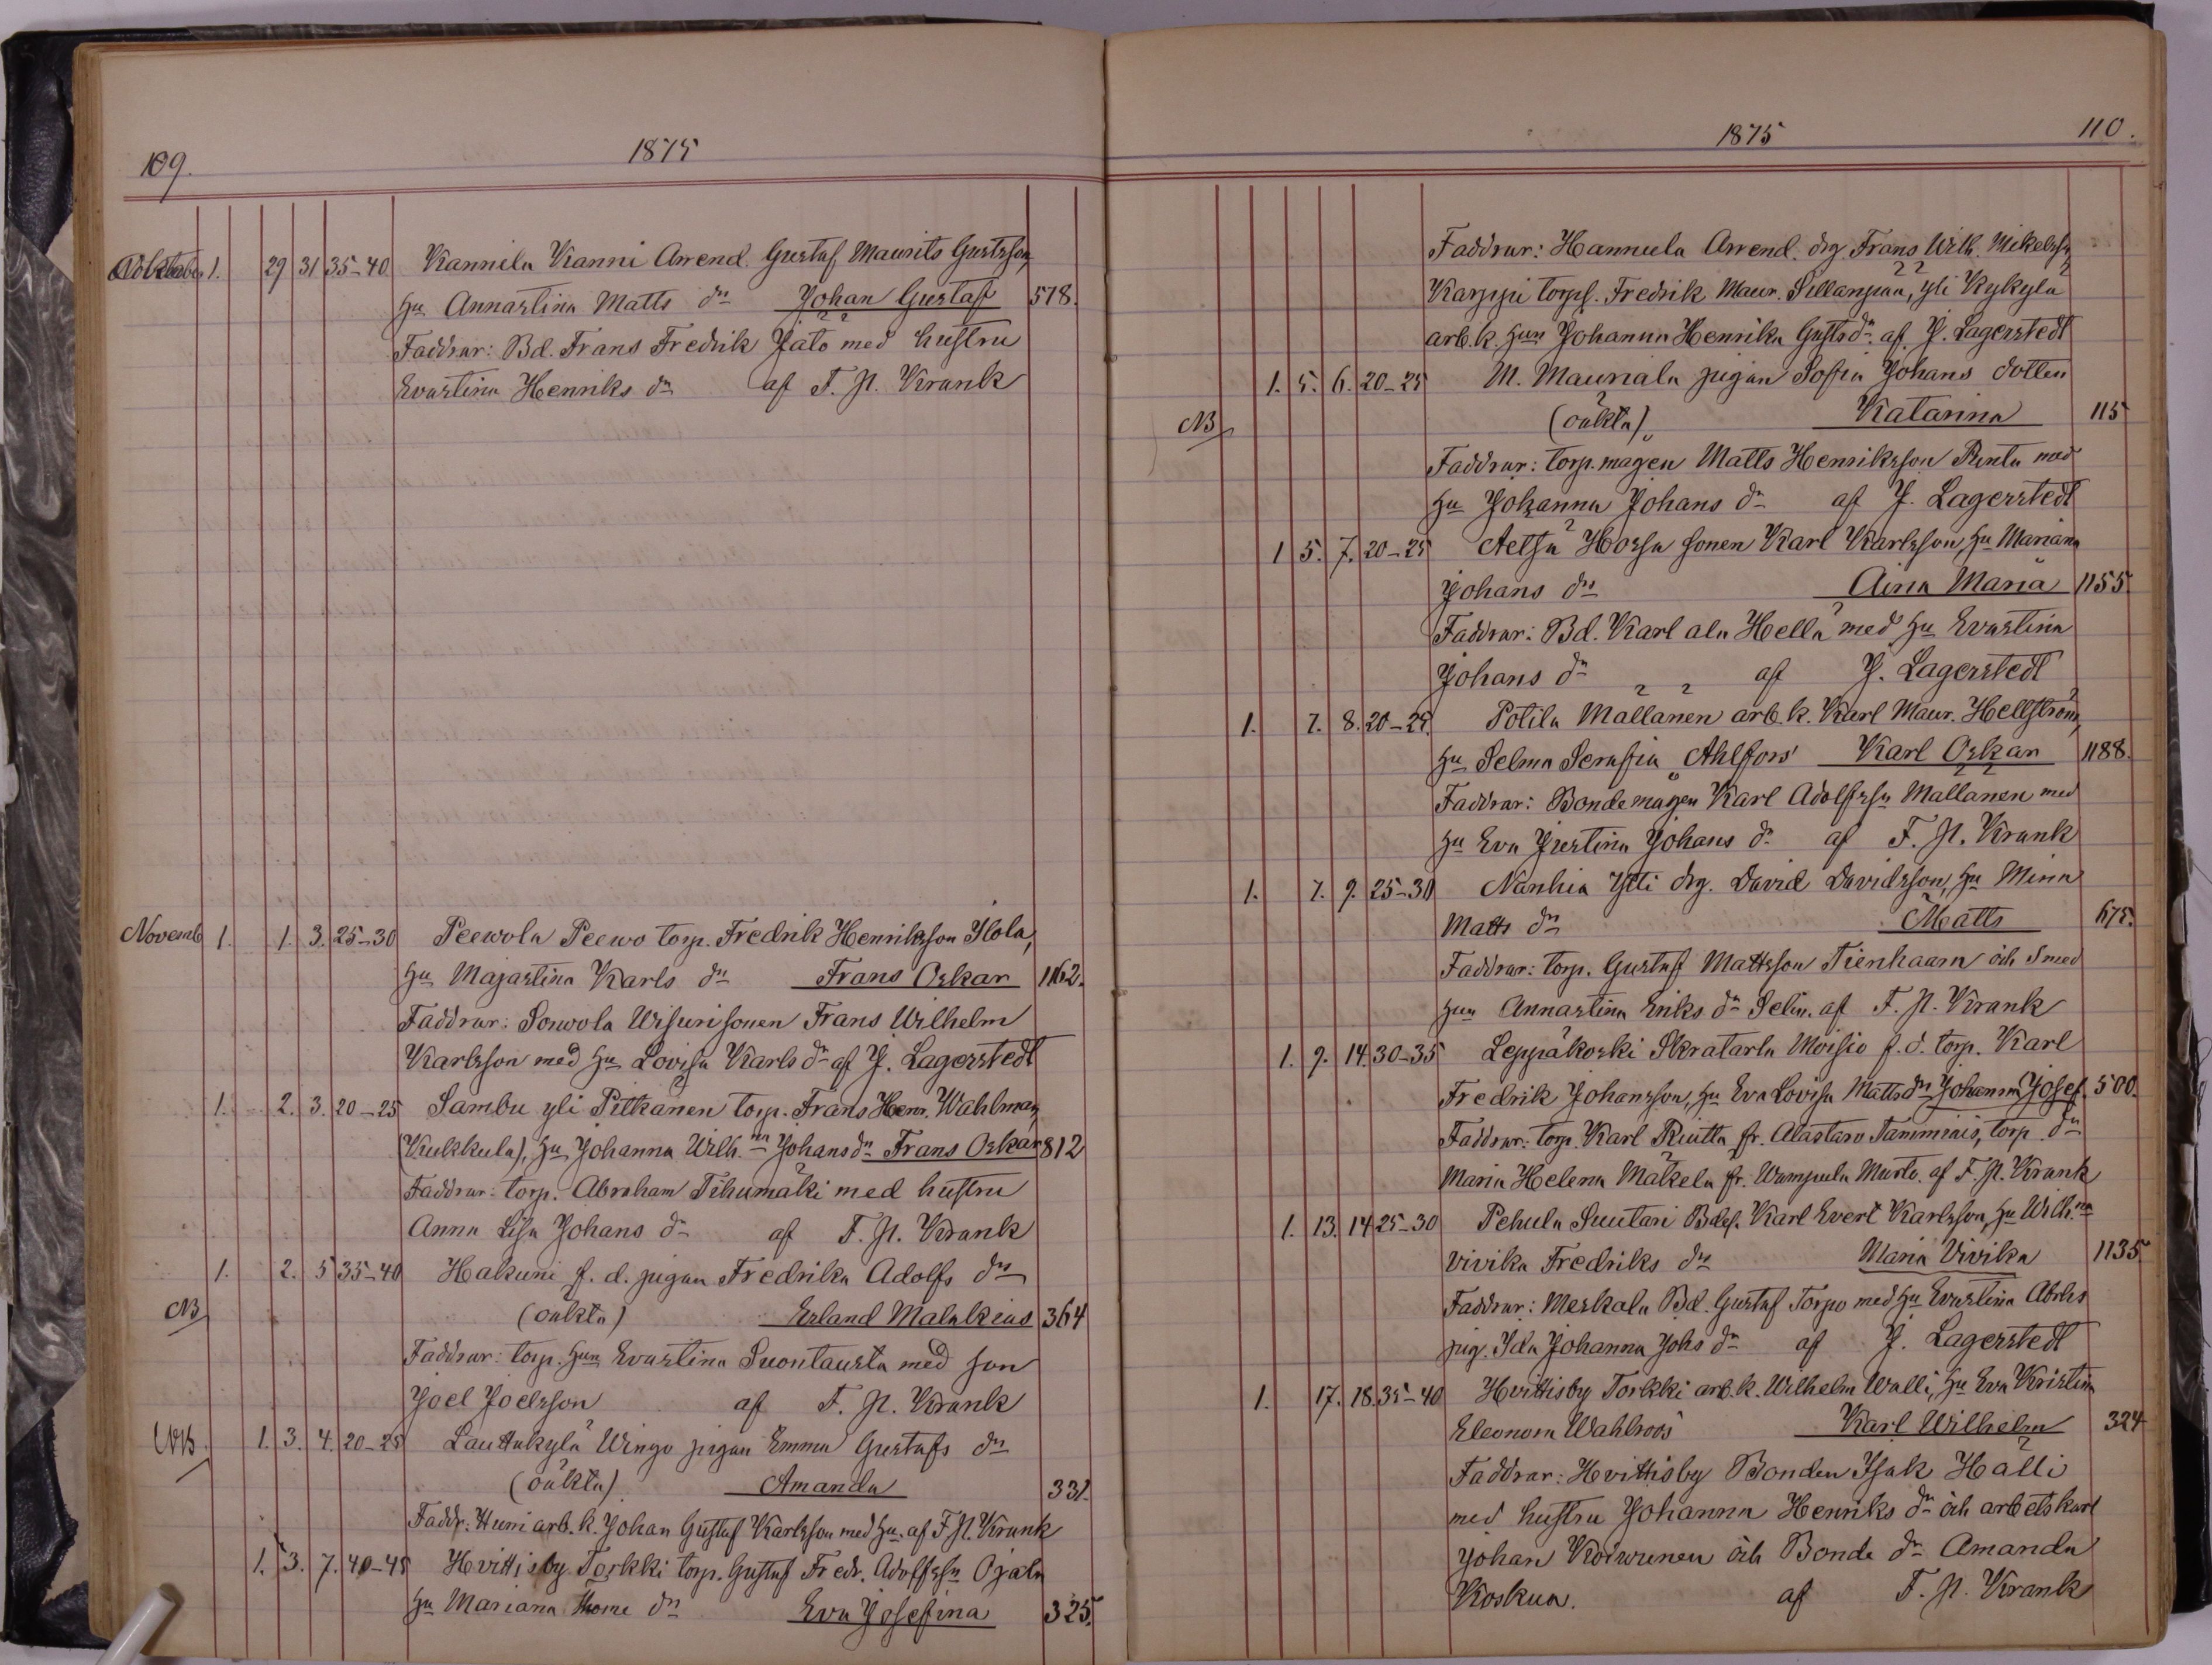 109.
1875
Oktober 1. 29 31 35-40 Kannila Kanni Arrend. Gustaf Maurits Gustsson,
Hu Annastina Matts dr Johan Gustaf 578.
Faddrar: Bd. Frans Fredrik Jato med hustru
Evastina Henriks dr af F. N. Krank
Novemb 1. 1. 3. 25-30 Peewola Peewo torp. Fredrik Henriksson Ilola,
Hu Majastina Karls dr Frans Oskar 1162.
Faddrar: Sonwola Wisuri sonen Frans Wilhelm
Karlsson med Hu Lovisa Karls dr af J. Lagerstedt
1. 2. 3. 20-25 Sambu yli Pitkänen torp. Frans Henr. Wahlman
(Kukkula), Hu Johanna Wilh.na Johans dr Frans Oskar 812
Faddrar: torp. Abraham Tihumäki med hustru
Anna Lisa Johans dr af F. N. Krank
1. 2. 5 35-40 Hakuni f. d. pigan Fredrika Adolfs dr
NB (oäkta) Erland Malakius 364
Faddrar: torp. Hun Evastina Suontausta med son
Joel Joelsson af F. N. Krank
NB. 1. 3. 4. 20-25 Lauttakylä Wingo pigan Emma Gustafs dr
(oäkta) Amanda 331.
Faddr. Huni arb. k. Johan Gustaf Karlsson med Hu. af F. N. Krank
1. 3. 7. 40-45 Hvittisby Torkki torp. Gustaf Fredr. Adolfssn Ojala
Hu Mariana Thome dr Eva Josefina 325.
1875
110.
Faddrar: Hannula Arrend. drg Frans Wilh. Mikelssn,
Karppi torpf. Fredrik Maur. Sillanpää, yli Kykylä
arb. k. Hun Johanna Henrika Gustsdr. af J. Lagerstedt
1. 5. 6. 20-25 M. Mauriala pigan Sofia Johans dotter
NB (oäkta) Katarina 115
Faddrar: torp. mågen Matts Henriksson Rinta med
Hu Johanna Johans dr af J. Lagerstedt
1 5. 7. 20-25 Aetsä Horsa sonen Karl Karlsson, Hu Mariana
Johans dr Aina Maria 1155.
Faddrar: Bd. Karl ala Hellä med Hu Evastina
Johans dr af J. Lagerstedt
1. 7. 8. 20-25. Potila Mallanen arb. k. Karl Maur. Hellström,
Hu Selma Serafia Ahlfors Karl Oskar 1188.
Faddrar: Bondemågen Karl Adolfssn Mallanen med
Hu Eva Justina Johans dr af F. N. Krank
1. 7. 9. 25-30 Nanhia Yli drg. David Davidsson, Hu Mina
Matts dr Matts 675.
Faddrar: torp. Gustaf Mattsson Tienhaara och Smed
Hun Annastina Eriks dr Selin. af F. N. Krank
1. 9. 14. 30-35 Leppäkoski Skratarla Moisio f. d. torp. Karl
Fredrik Johansson, Hu Eva Lovisa Mattsdr Johanna Josef. 500.
Faddrar: torp. Karl Rintta fr. Alastaro Tammiais, torp. dr
Maria Helena Mäkelä fr. Wampula Murto. af F. N. Krank
1. 13. 14 25-30 Pehula Suutari Bdes. Karl Evert Karlsson, Hu Wilh.na
Vivika Fredriks dr Maria Vivika 1135.
Faddrar: Meskala Bd. Gustaf Torpo med Hu Evastina Abrhs
pig. Ida Johanna Johs dr af J. Lagerstedt
1. 17. 18. 35-40 Hvittisby Torkki arb. k. Wilhelm Walli, Hu Eva Kristina
Eleonora Wahlroos Karl Wilhelm 324
Faddrar: Hvittisby Bonden Isak Hälli
med hustru Johanna Henriks dr och arbetskarl
Johan Koiwunen och Bonde dr Amanda
Koskua. af F. N. Krank